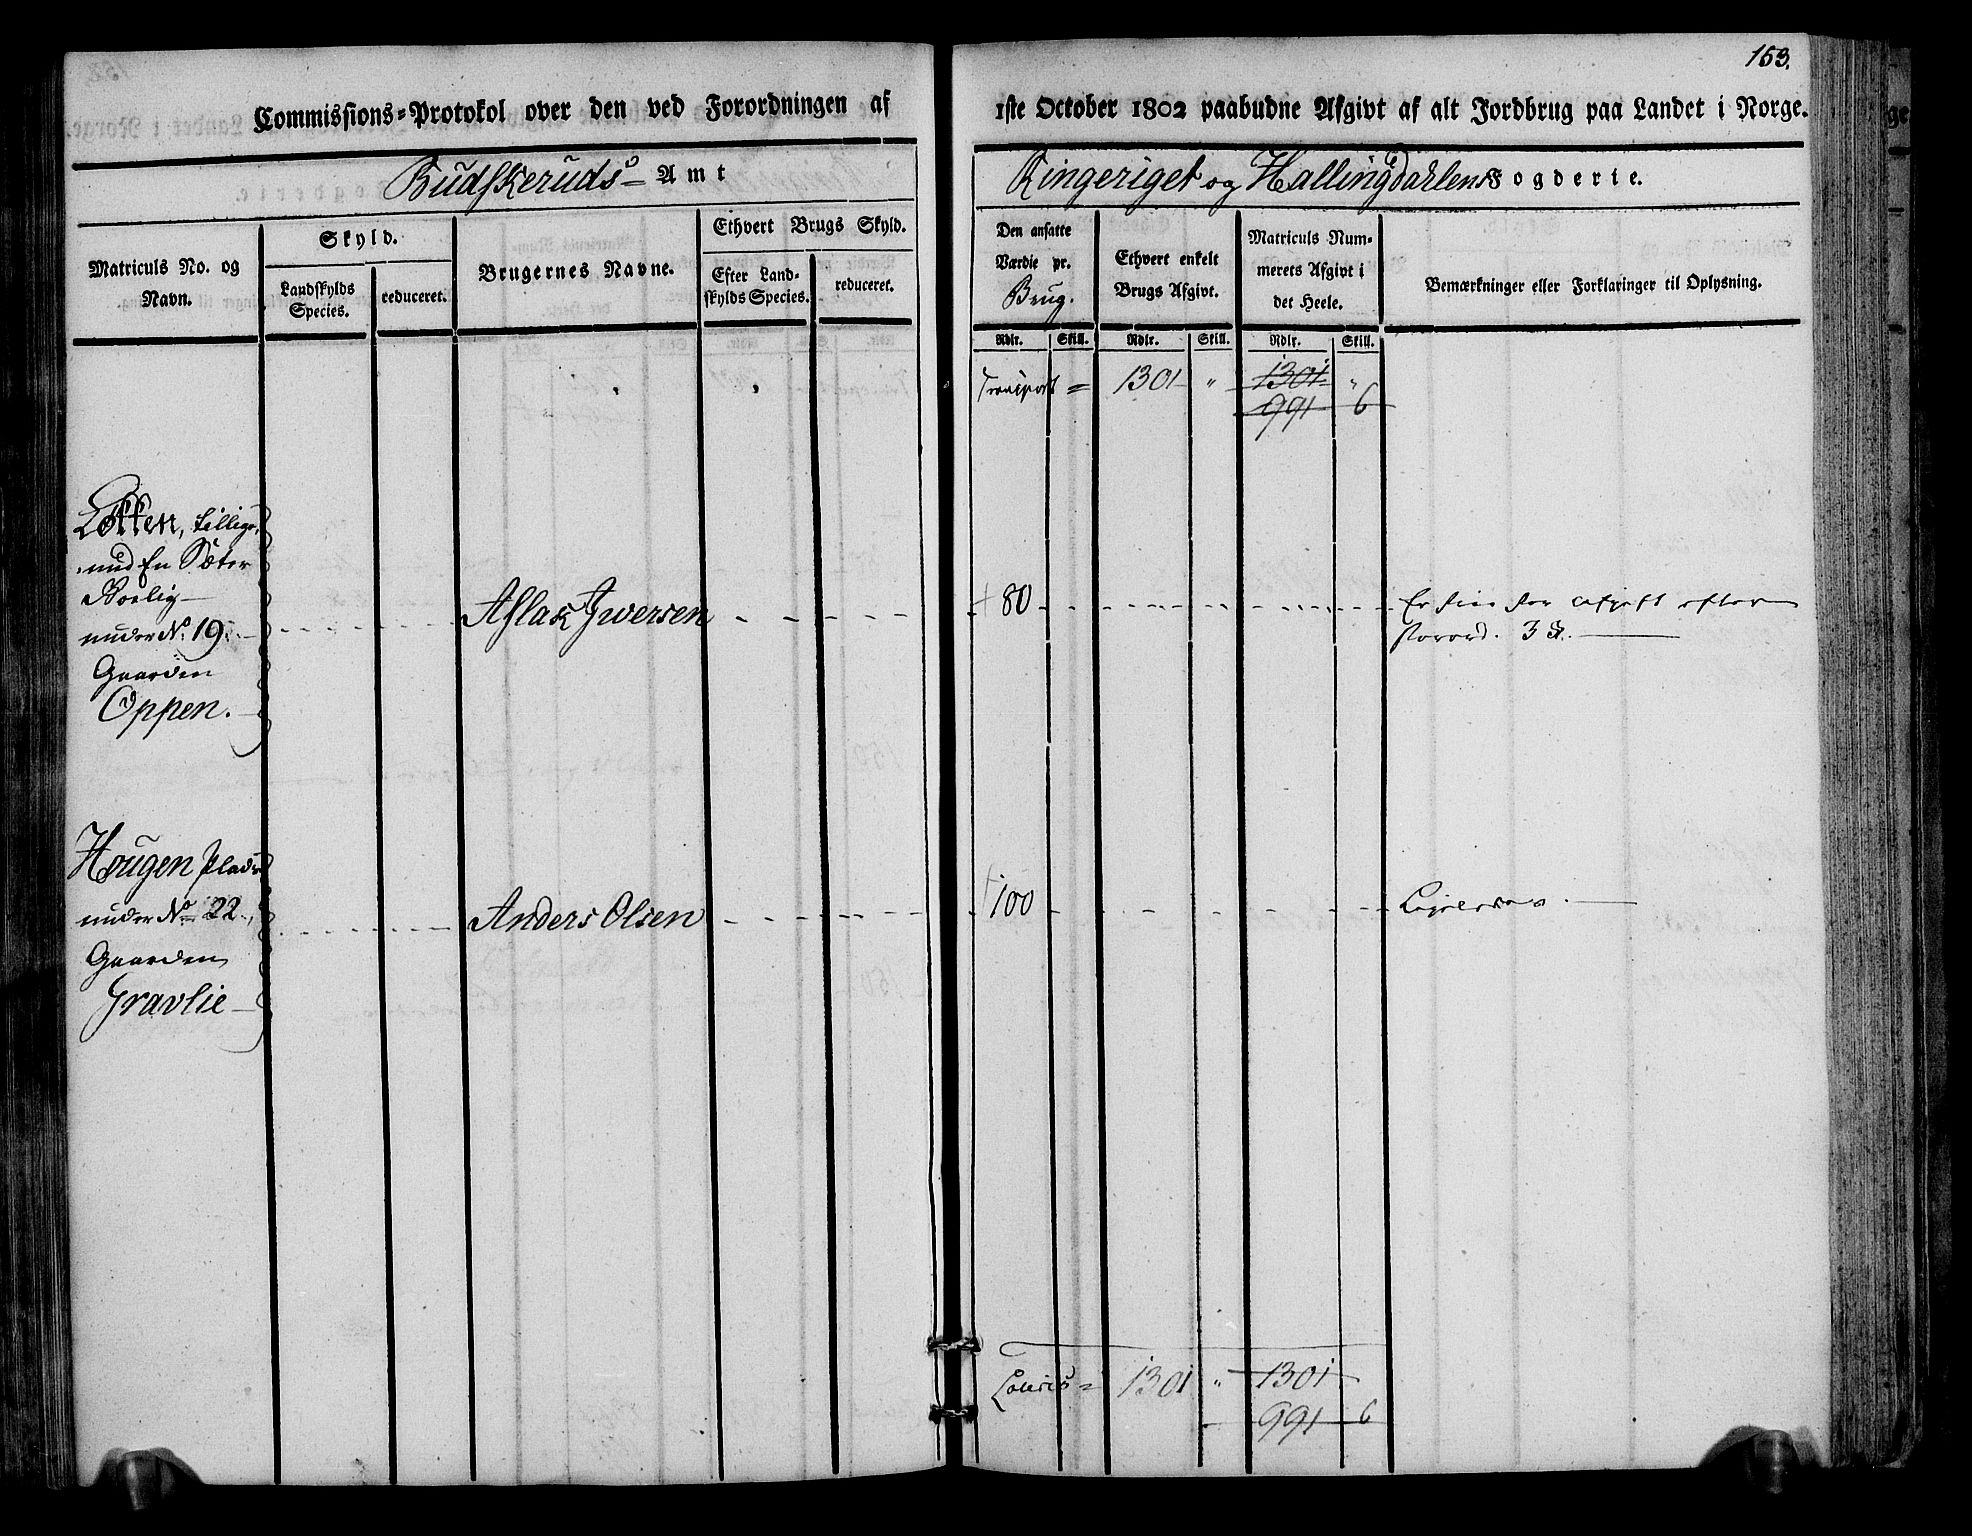 153.
Commissions-Protokol over den ved Forordningen af 1ste October 1802 paabudne Afgivt af alt Jordbrug paa Landet i Norge.
Budskeruds Amt
Ringeriget og Hallingdahlens Fogderie.
Matriculs No. og Navn.
Skyld.
Landskylds Species.
reduceret.
Brugernes Navne.
Ethvert Brugs Skyld.
Efter Landskylds Species.
reduceret.
Den ansatte Værdie pr. Brug.
Ethvert enkelt Brugs Afgivt.
Matriculs Nummerets Afgivt i det Heele.
Bemærkninger eller Forklaringer til Oplysning.
Rdlr. Skill. Rdlr. Skill. Rdlr. Skill.
Transport = 1301 " 1301 "
991 6
Løkken, tillige
med En Sæter
Boelig
under No. 19.
Gaarden
Oppen.
Aslak Iwersen
80
Er frie for Afgift efter
Forord. 3 §.
Hougen Plads
under No 22.
Gaarden
Gravlie
Anders Olsen
100
Ligeledes.
Lateris = 1301 " 1301
991 6